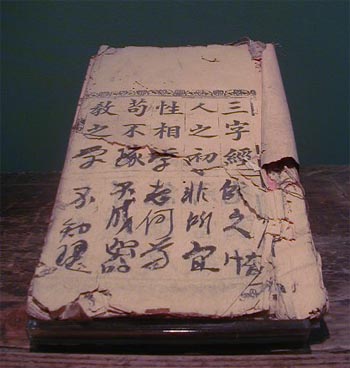 三字經師之惰
人之初非所宜
性相學老何為
苟不琢不成器
教之學不知理